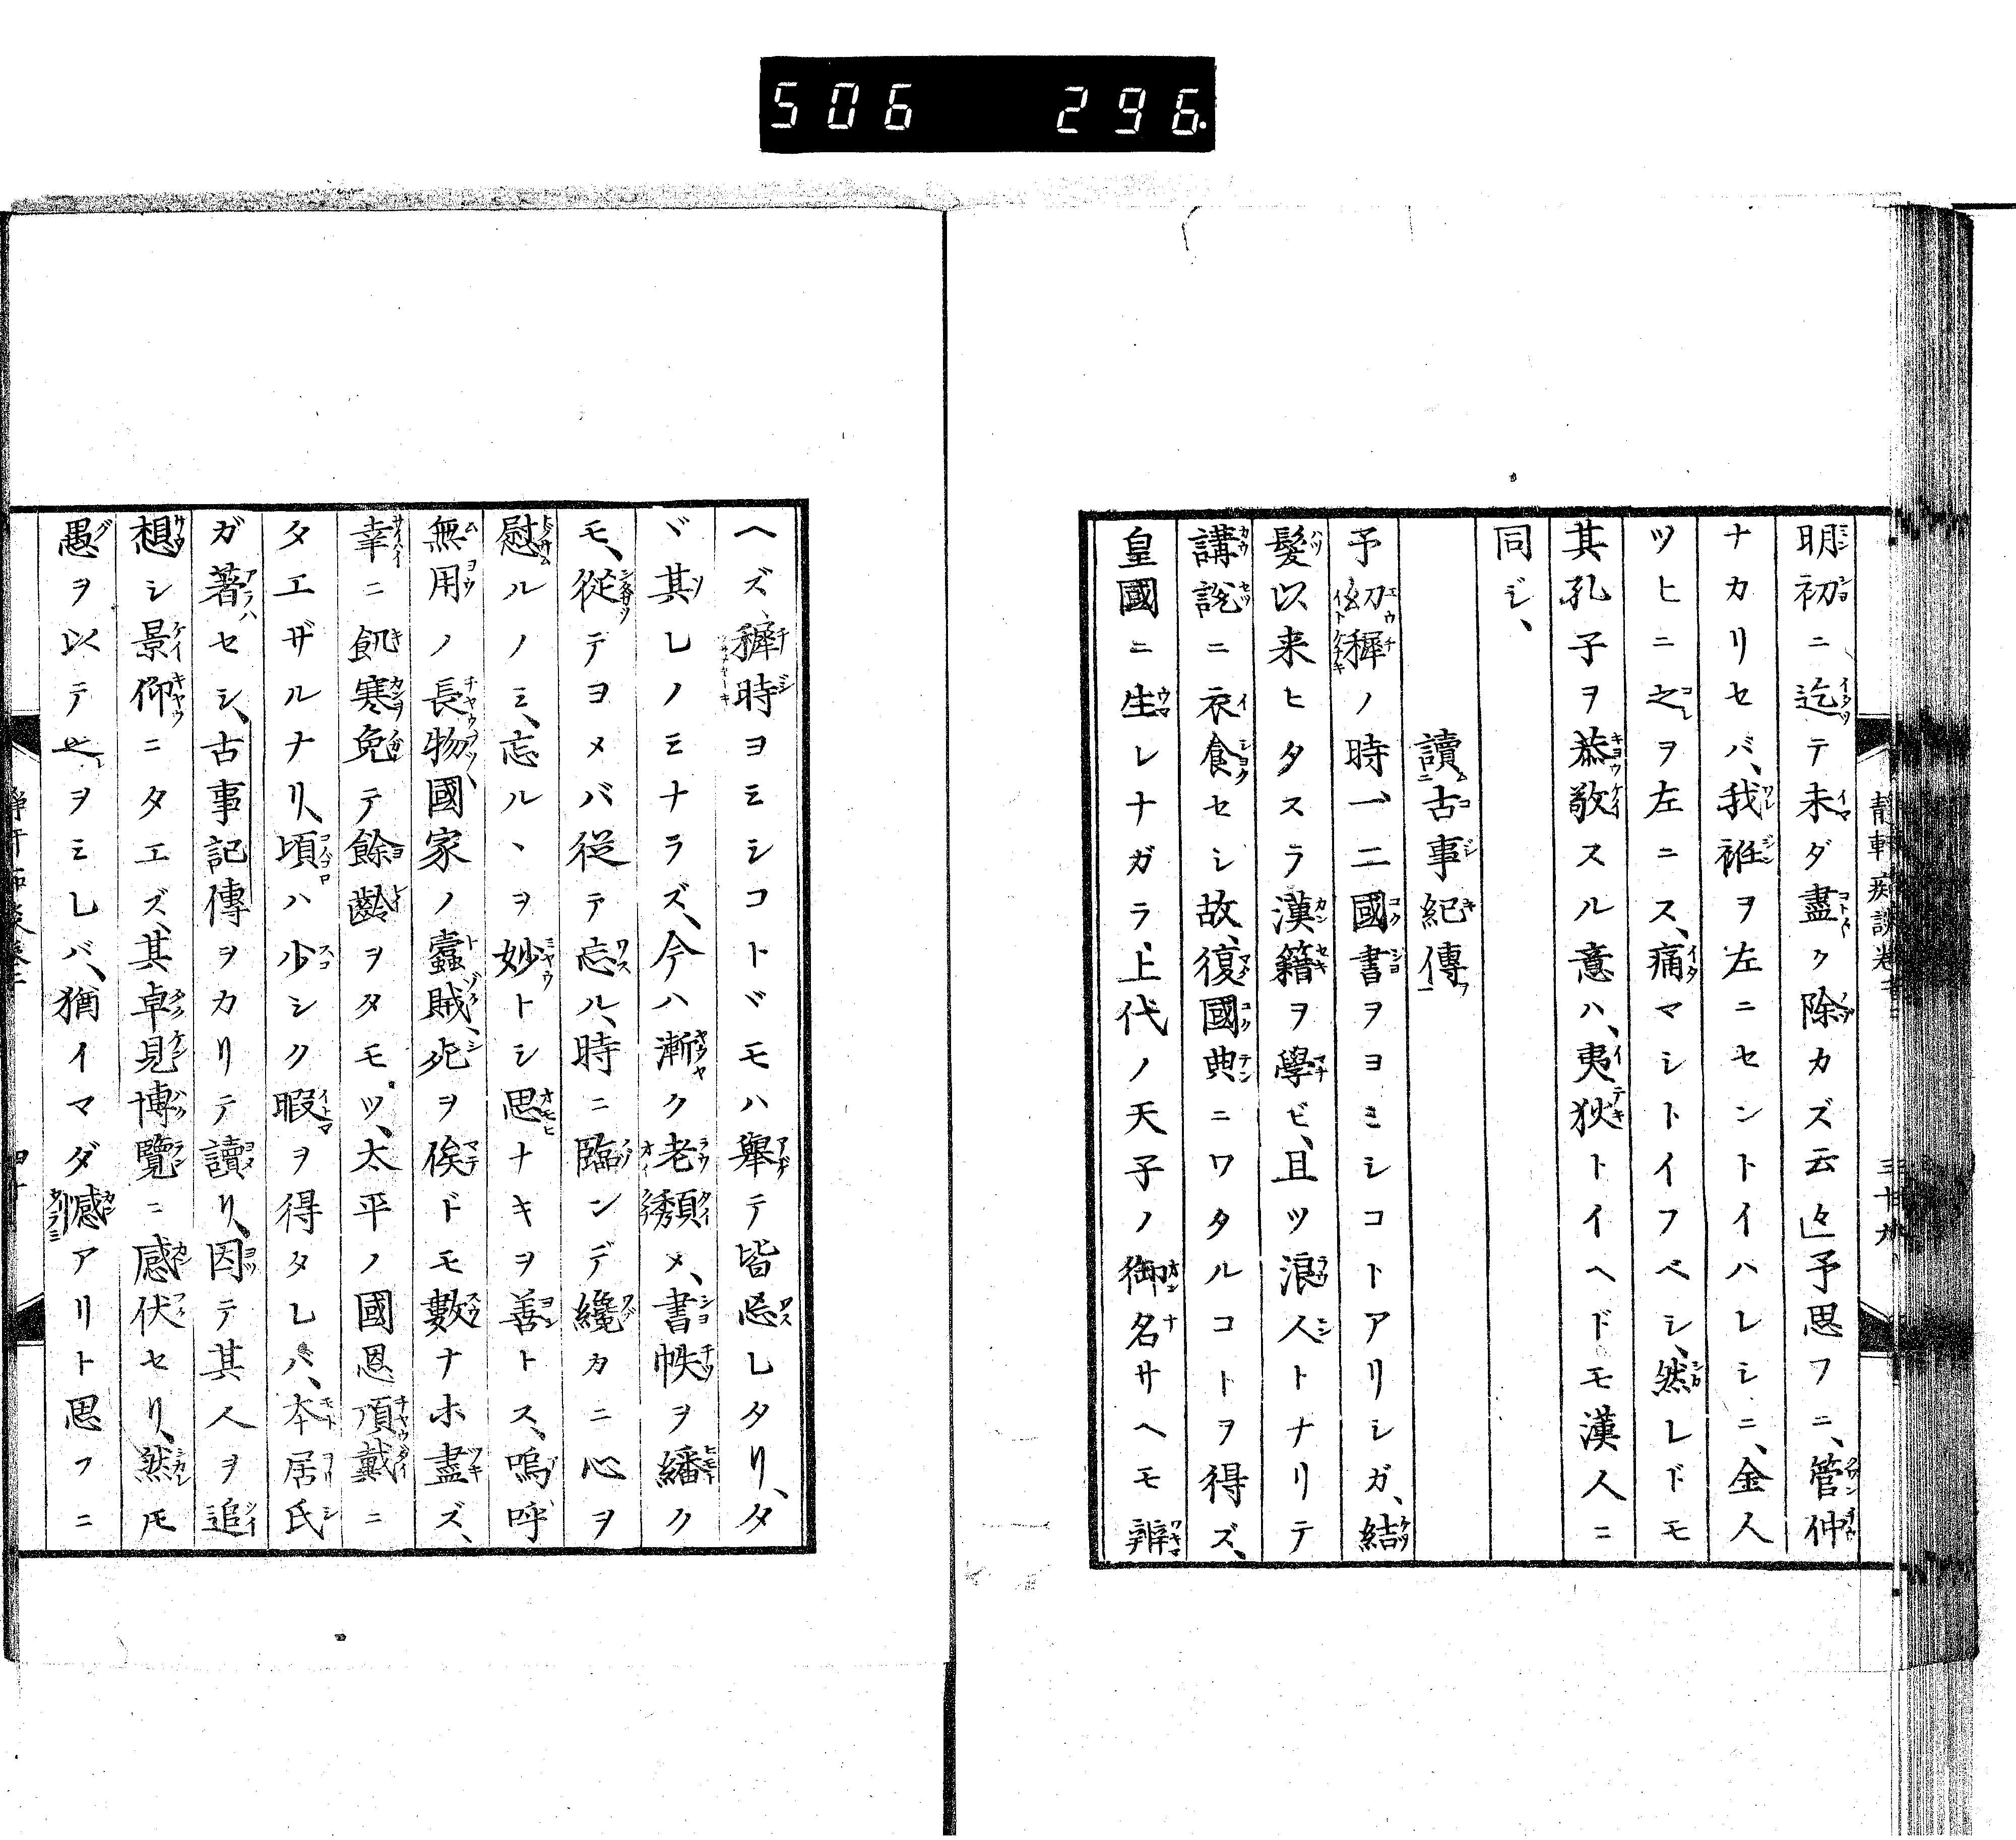 506 296
明初ニ迄テ未ダ盡ク除カズ云々」予思フニ、管仲
ナカリセバ、我衽ヲ左ニセントイハレシニ、金人
ツヒニ之ヲ左ニス、痛マシトイフベシ、然レドモ
其孔子ヲ恭敬スル意ハ、夷狄トイヘドモ漢人ニ
同ジ、
讀古事紀傳
予幼穉ノ時、一二國書ヲヨミシコトアリシガ、結
髮以来ヒタスラ漢籍ヲ學ビ、且ツ浪人トナリテ
講説ニ衣食セシ故、復國典ニワタルコトヲ得ズ、
皇國ニ生レナガラ、上代ノ天子ノ御名サヘモ辨
ヘズ、穉時ヨミシコトドモハ舉テ皆忘レタリ、タ
ヾ其レノミナラズ、今ハ漸ク老頽メ、書帙ヲ繙ク
モ、從テヨメバ從テ忘ル、時ニ臨ンデ纔カニ心ヲ
慰ルノミ、忘ルヽヲ妙トシ思ナキヲ善トス、嗚呼
無用ノ長物國家ノ蠹賊、死ヲ俟ドモ數ナホ盡ズ、
幸ニ飢寒免テ餘齡ヲタモツ、太平ノ國恩頂戴ニ
タエザルナリ、頃ハ少シク暇ヲ得タレバ、本居氏
ガ著セシ、古事記傳ヲカリテ讀リ、因テ其人ヲ追
想シ景仰ニタエズ、其卓見博覽ニ感伏セリ、然モ
愚ヲ以テ之ヲミレバ、猶イマダ憾アリト思フニ